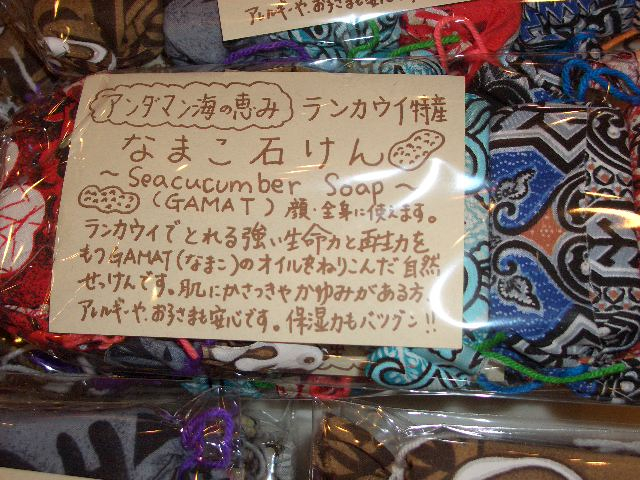 アレルギーや、お子さまも安心です。
アンダマン海の恵み ランカウイ特産
なまこ石けん
～Seacucumber Soap～
(GAMAT) 顔・全身に使えます。
ランカウイでとれる強い生命力と再生力を
もつGAMAT(なまこ)のオイルをねりこんだ自然
せっけんです。肌にかさつきやかゆみがある方、
アレルギーや、お子さまも安心です。保湿力もバツグン!!